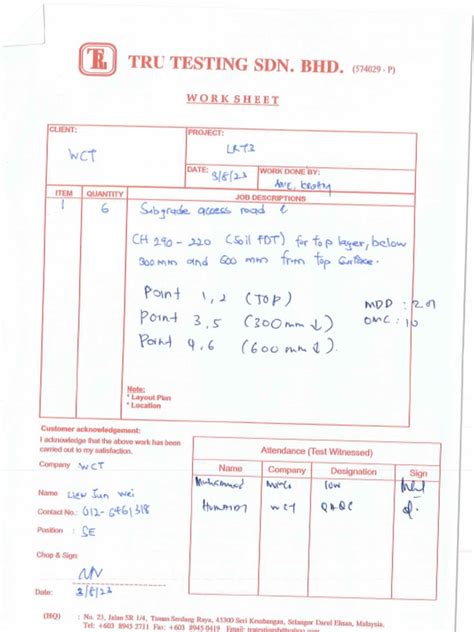 TRU TESTING SDN. BHD. (574029 - P)
WORK SHEET
CLIENT:
WCT
PROJECT:
LRT3
DATE: 3/8/23
WORK DONE BY:
ITEM QUANTITY JOB DESCRIPTIONS
1 6 Subgrade access road
CH 290 - 220 (Soil FDT) for top layer, below
300mm and 600 mm from top surface.
Point 1,2 (TOP)
Point 3,5 (300mm ↓)
Point 4,6 (600mm ↓).
MDD : 2.01
OMC : 10
Note:
* Layout Plan
* Location
Customer acknowledgement:
I acknowledge that the above work has been
carried out to my satisfaction.
Company WCT
Name Liew Jun Wei
Contact No.: 012-6461318
Position : SE
Chop & Sign:
Date: 3/8/23
Attendance (Test Witnessed)
Name Company Designation Sign
Muhammad IOW
WCT QAQC
(HQ) : No. 23, Jalan SR 1/4, Taman Serdang Raya, 43300 Seri Kembangan, Selangor Darul Ehsan, Malaysia.
Tel: +603 8945 2711 Fax: +603 8945 0419 Email: